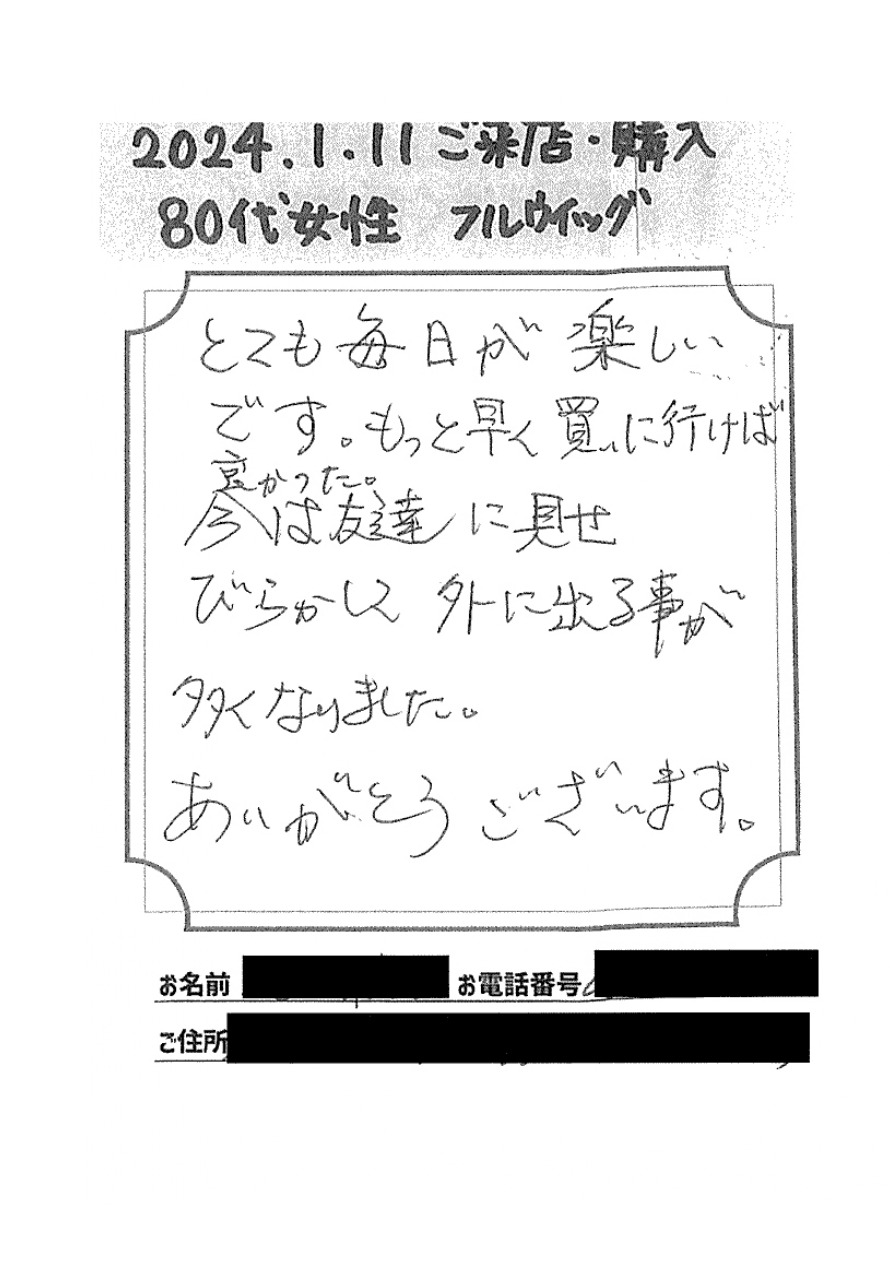 2024.1.11 ご来店・購入
80代女性 フルウイッグ
とても毎日が楽しい
です。もっと早く買いに行けば
良かった。
今は友達に見せ
びらかして外に出る事が
多くなりました。
ありがとうございます。
お名前 お電話番号
ご住所